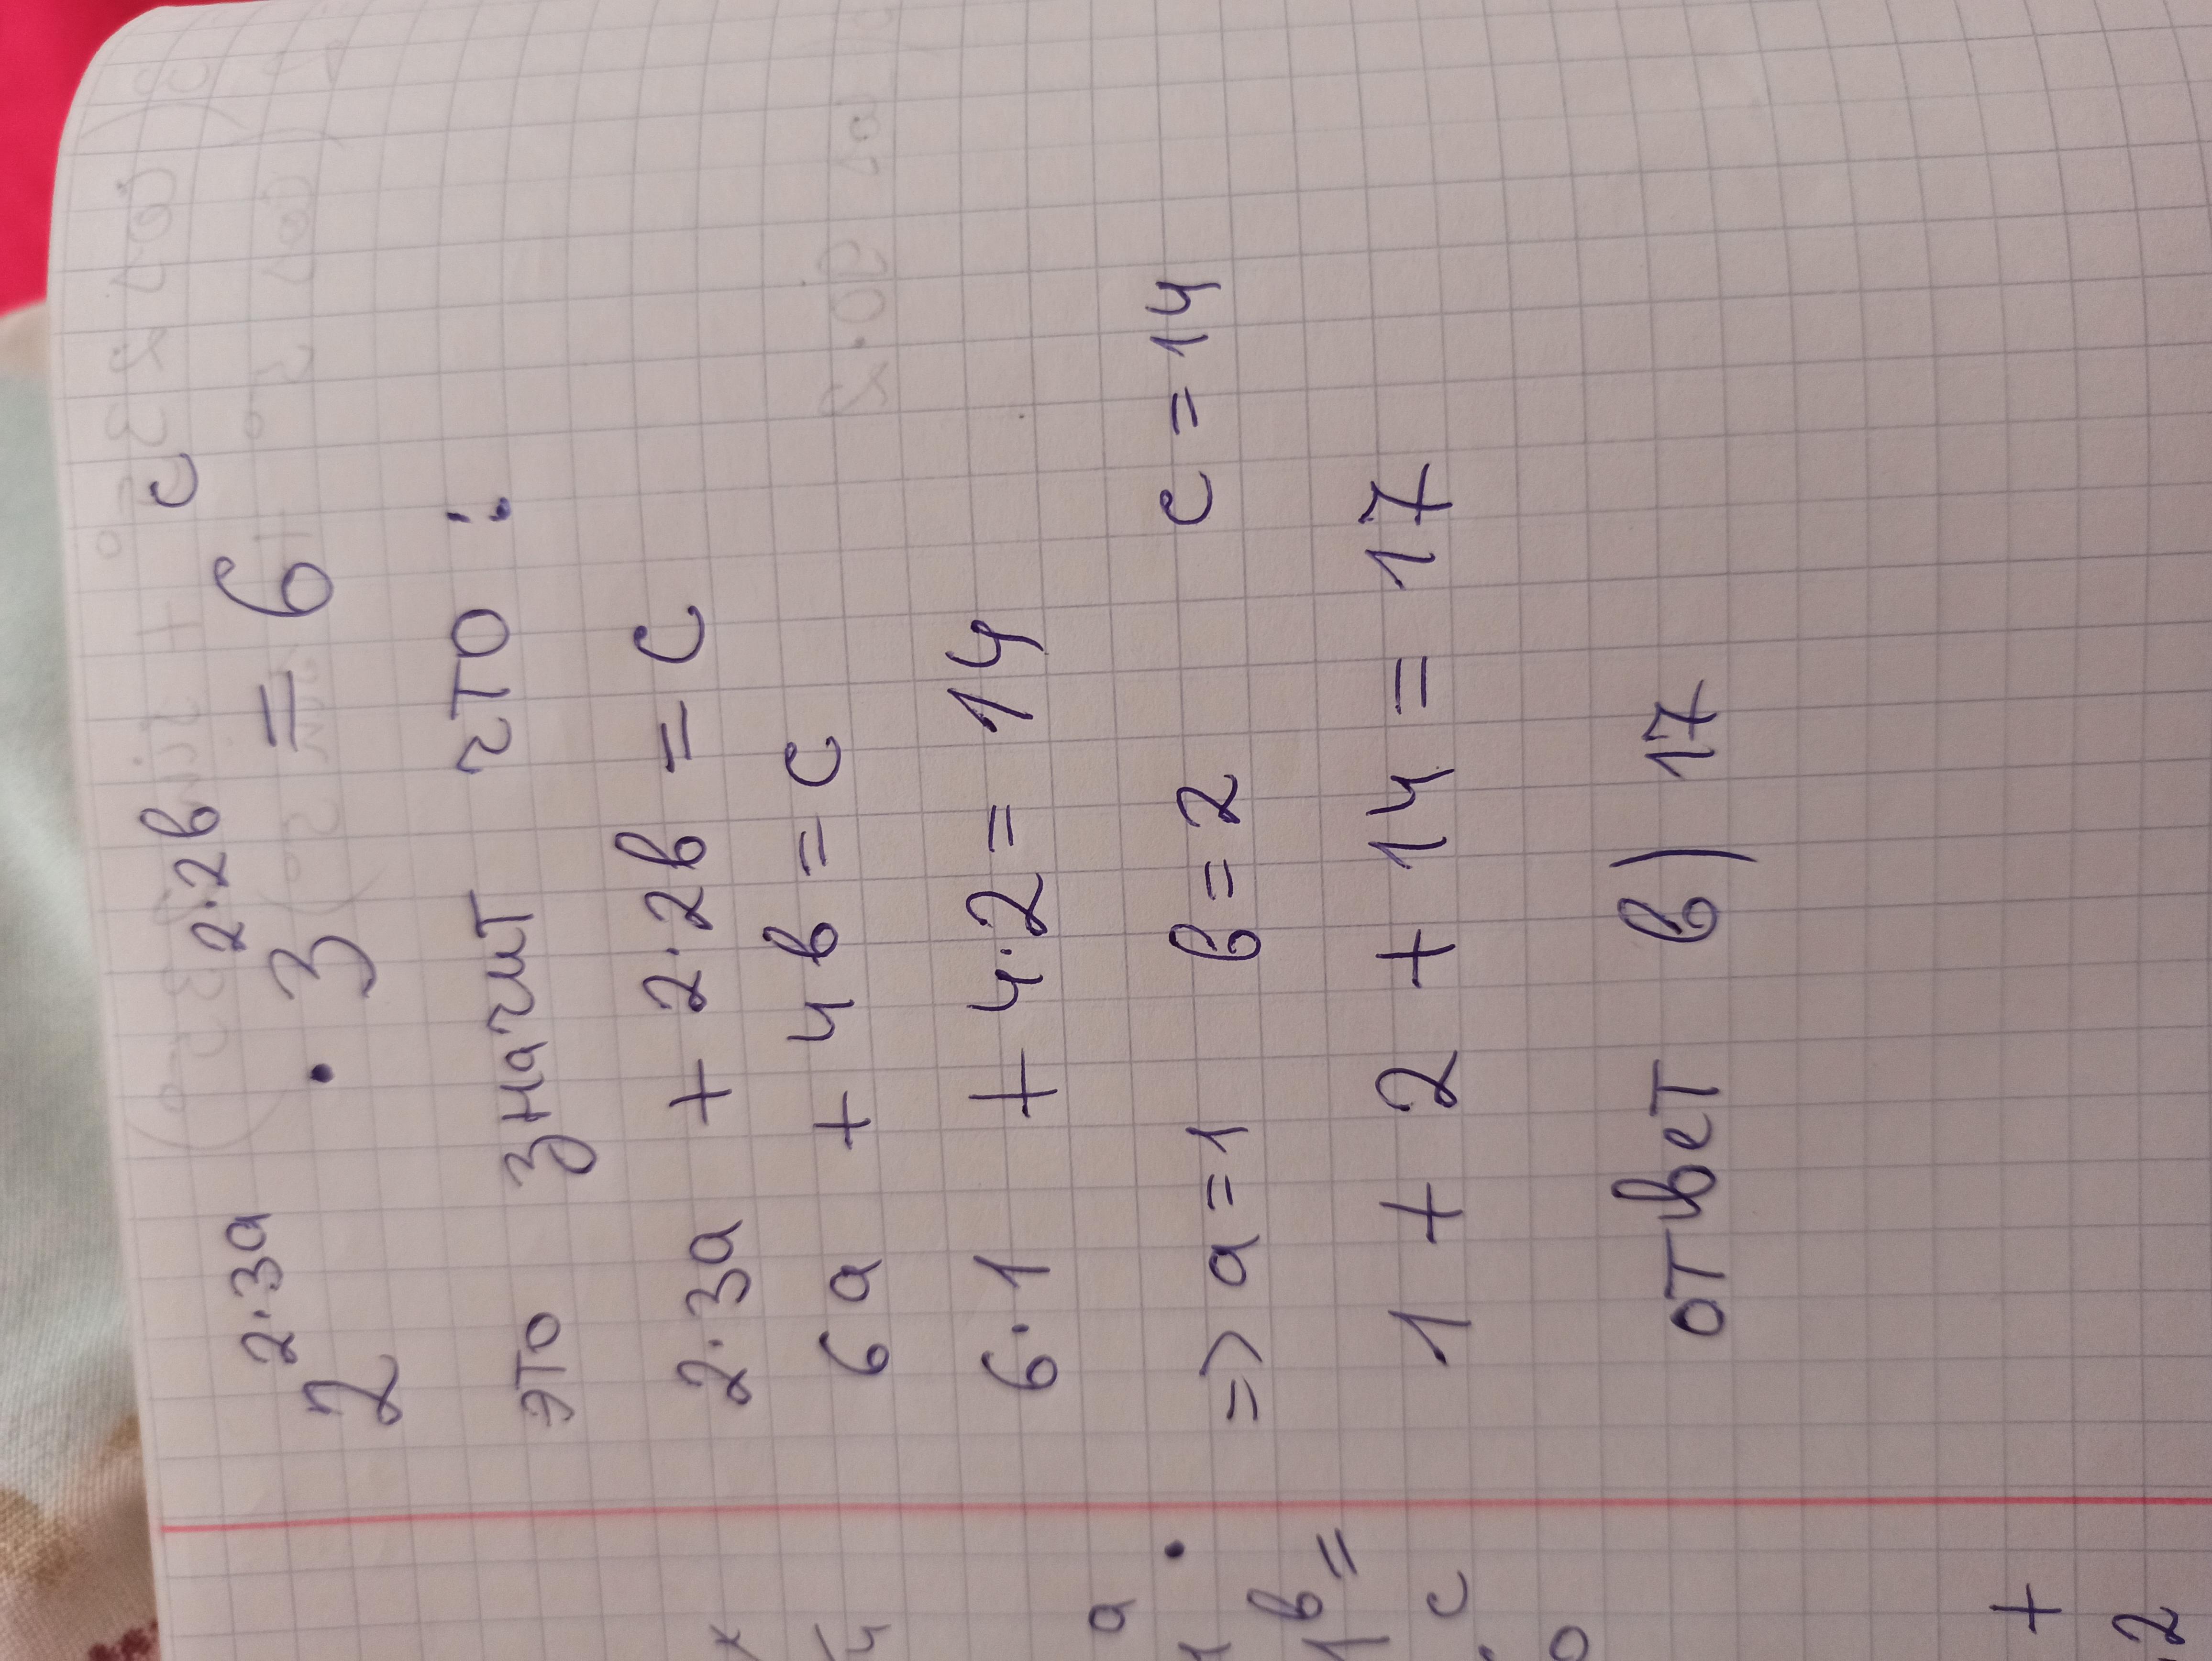 2^(2·3a) · 3^(2·2в) = 6^c
это значит что :
2·3a + 2·2в = c
6a + 4в = c
6·1 + 4·2 = 14
=> a=1 в=2 c=14
1 + 2 + 14 = 17
ответ в) 17